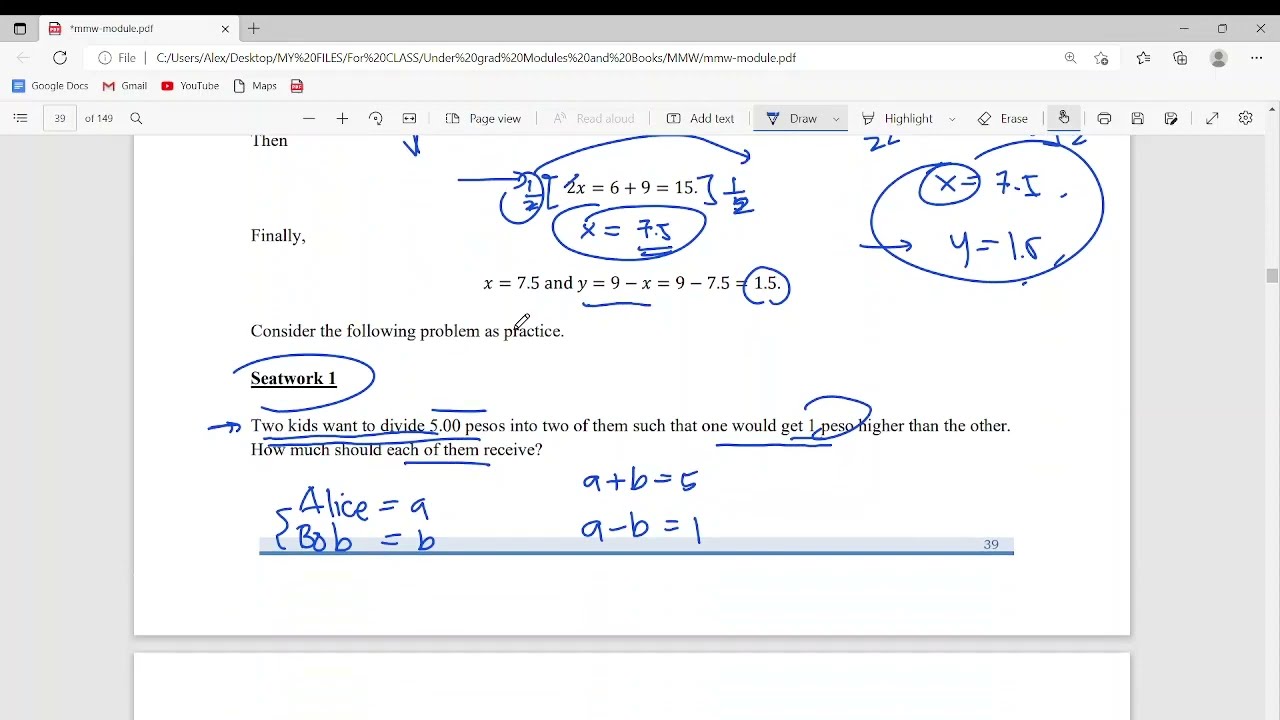 *mmw-module.pdf
File
C:/Users/Alex/Desktop/MY%20FILES/For%20CLASS/Under%20grad%20Modules%20and%20Books/MMW/mmw-module.pdf
Google Docs Gmail YouTube Maps
39 of 149 Page view Read aloud Add text Draw Highlight Erase
Then
1/2 [ 2x = 6 + 9 = 15. ] 1/2
x = 7.5
x = 7.5
y = 1.5
Finally,
x = 7.5 and y = 9 − x = 9 − 7.5 = 1.5.
Consider the following problem as practice.
Seatwork 1
Two kids want to divide 5.00 pesos into two of them such that one would get 1 peso higher than the other.
How much should each of them receive?
a+b=5
Alice = a
a-b=1
Bob = b
39